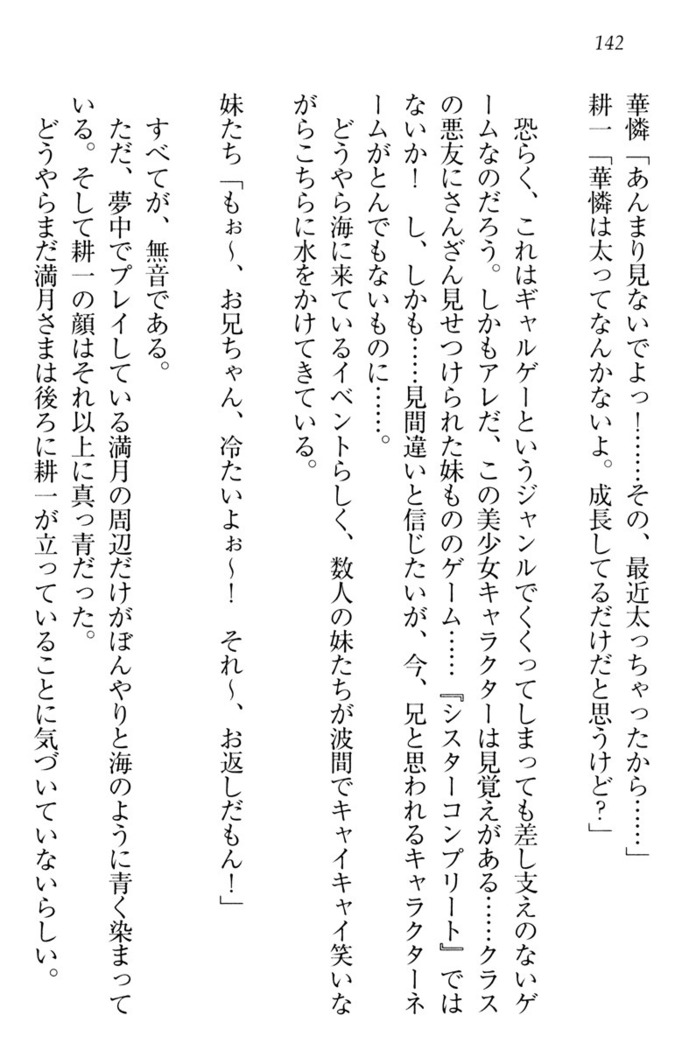 142
華憐「あんまり見ないでよっ！……その、最近太っちゃったから……」
耕一「華憐は太ってなんかないよ。成長してるだけだと思うけど？」
恐らく、これはギャルゲーというジャンルでくくってしまっても差し支えのないゲ
ームなのだろう。しかもアレだ、この美少女キャラクターは見覚えがある……クラス
の悪友にさんざん見せつけられた妹もののゲーム……『シスターコンプリート』では
ないか！　し、しかも……見間違いと信じたいが、今、兄と思われるキャラクターネ
ームがとんでもないものに……。
どうやら海に来ているイベントらしく、数人の妹たちが波間でキャイキャイ笑いな
がらこちらに水をかけてきている。
妹たち「もぉ〜、お兄ちゃん、冷たいよぉ〜！　それ〜、お返しだもん！」
すべてが、無音である。
ただ、夢中でプレイしている満月の周辺だけがぼんやりと海のように青く染まって
いる。そして耕一の顔はそれ以上に真っ青だった。
どうやらまだ満月さまは後ろに耕一が立っていることに気づいていないらしい。